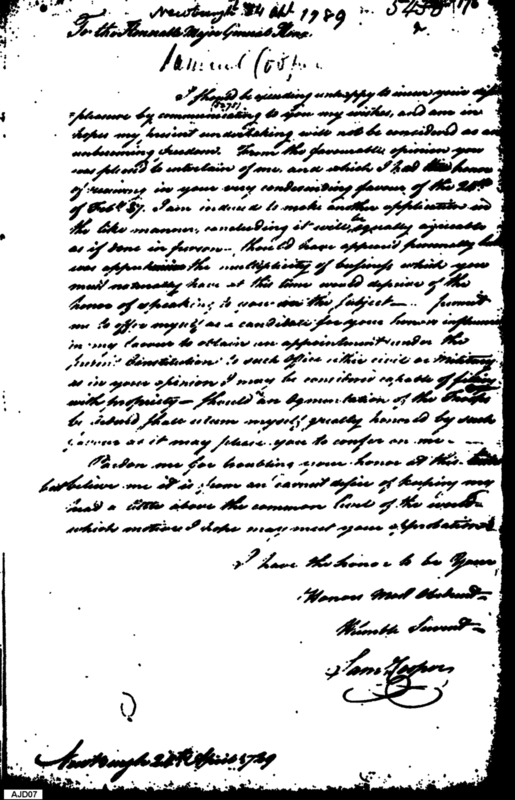 Newburgh 24 Apl 1789
To the Honorable Major General Knox
Samuel Cooper
I should be exceeding unhappy to incur your dis
pleasure by communicating to you my wishes, and am in
hopes my present undertaking will not be considered as an
unbecoming freedom. From the favourable opinion you
was pleas'd to entertain of me, and which I had the honor
of receiving in your very condescending favour of the 24th
of Feby 87. I am induced to make another application in
the like manner, concluding it will be equally agreeable
as if done in person. Should have appear'd personally but
was apprehensive the multiplicity of business which you
must naturally have at this time would deprive of the
honor of speaking to you on the subject permit
me to offer myself as a candidate for your honors influence
in my favour to obtain an appointment under the
present Constitution to such office either civil or military
as in your opinion I may be considered capable of filling
with propriety - Should an augmentation of the Troops
be shall esteem myself greatly honored by such
favour as it may please you to confer on me.
Pardon me for troubling your honor at this
but believe me it is from an earnest desire of keeping my
head a little above the common level of the world
which motive I hope may meet your approbation
I have the honor to be Your
Honors Most Obedient
Humble Servant
Sam Cooper
Newburgh 24th April 1789
AJD07